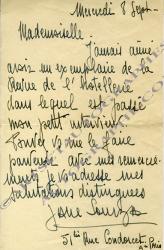 Mercredi 8 Sept.
Mademoiselle.
Jamais aimé
avoir un exemplaire de la
Revue de l'hotellerie
dans lequel est passé
mon petit interview
Pouvez vous me le faire
parvenir avec mes remercie-
ments je vous adresse mes
salutations distinguées
51 bis Rue Condorcet
Paris